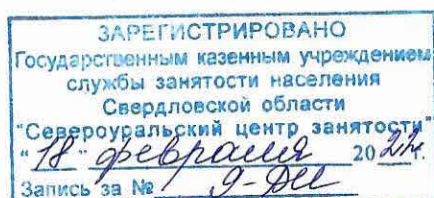 ЗАРЕГИСТРИРОВАНО
Государственным казенным учреждением
службы занятости населения
Свердловской области
"Североуральский центр занятости"
"18" февраля 2022г.
Запись за № 9-ДИ